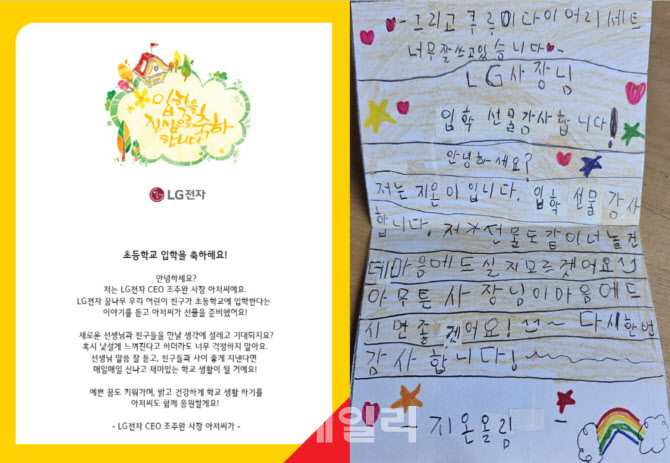 입학을
진심으로 축하
합니다
LG전자
초등학교 입학을 축하해요!
안녕하세요?
저는 LG전자 CEO 조주완 사장 아저씨예요.
LG전자 꿈나무 우리 어린이 친구가 초등학교에 입학한다는
이야기를 듣고 아저씨가 선물을 준비했어요!
새로운 선생님과 친구들을 만날 생각에 설레고 기대되지요?
혹시 낯설게 느껴진다고 하더라도 너무 걱정하지 말아요.
선생님 말씀 잘 듣고, 친구들과 사이 좋게 지낸다면
매일매일 신나고 재미있는 학교 생활이 될 거예요!
예쁜 꿈도 키워가며, 밝고 건강하게 학교 생활 하기를
아저씨도 함께 응원할게요!
- LG전자 CEO 조주완 사장 아저씨가 -
- 그리고 쿠루미 다이어리 세트
너무 잘 쓰고 있습니다 -
LG사장님
입학 선물 감사합니다!
안녕하세요?
저는 지온이입니다. 입학 선물 감사
합니다. 저가 선물도 같이 너놀건
데 마음에 드실지 모르겟어요
아무튼 사장님이 마음에 드
시면 좋겠어요! ~ 다시한번
감사합니다!
- 지온올림 -
데일리